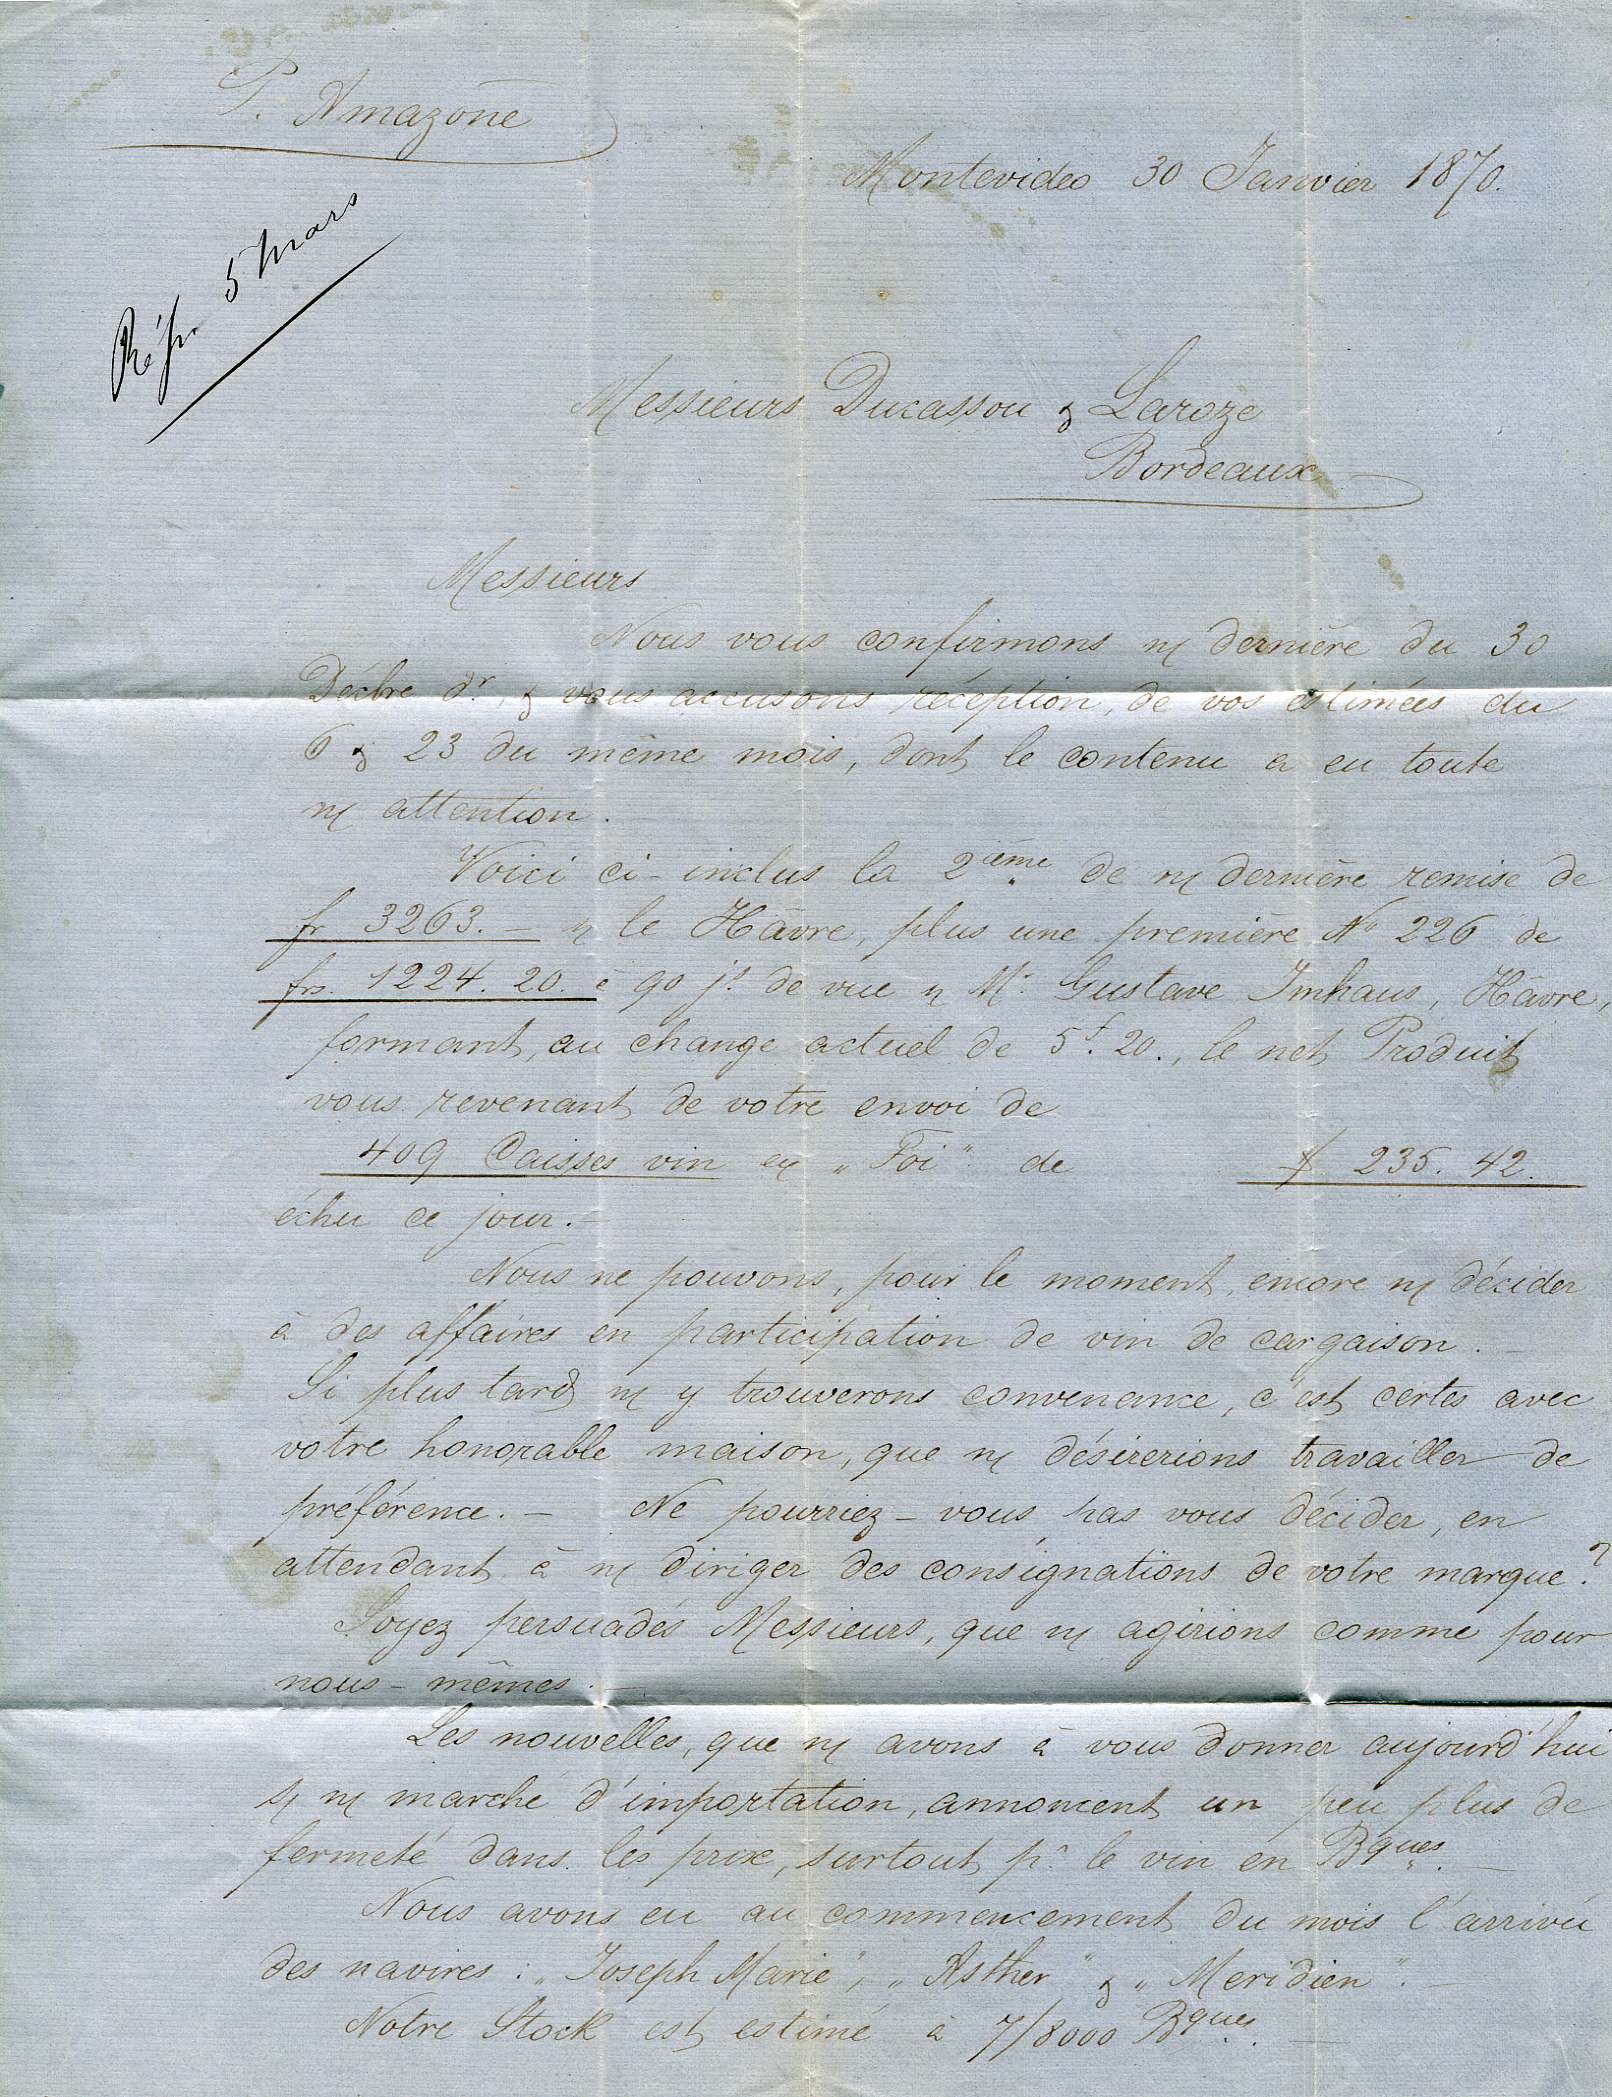 P. Amazone
Montevideo 30 Janvier 1870.
Rép. 5 Mars
Messieurs Ducassou & Laroze
Bordeaux
Messieurs
Nous vous confirmons n/ dernière du 30
Décbre dr, & vous accusons réception, de vos estimées du
6 & 23 du même mois, dont le contenu a eu toute
n/ attention.
Voici ci-inclus la 2ième de n/ dernière remise de
fr 3263.- s/ le Hâvre, plus une première No 226 de
frs. 1224.20. à 90 js de vue s/ Mr Gustave Imhaus, Hâvre,
formant, au change actuel de 5f.20., le net Produit
vous revenant de votre envoi de
409 Caisses vin ex „Foi" de $ 235.42.
échu ce jour.-
Nous ne pouvons, pour le moment, encore n/ décider
à des affaires en participation de vin de cargaison.-
Si plus tard n/ y trouverons convenance, c'est certes avec
votre honorable maison, que n/ désirerions travailler de
préférence.- Ne pourriez-vous pas vous décider, en
attendant à n/ diriger des consignations de votre marque?
Soyez persuadés Messieurs, que n/ agirions comme pour
nous-mêmes.-
Les nouvelles, que n/ avons à vous donner aujourd'hui
s/ n/ marché d'importation, annoncent un peu plus de
fermeté dans les prix, surtout pr le vin en Bques.-
Nous avons eu au commencement du mois l'arrivée
des navires: „Joseph Marie", „Asther" & „Meridien".-
Notre Stock est estimé à 7/8000 Bques.-